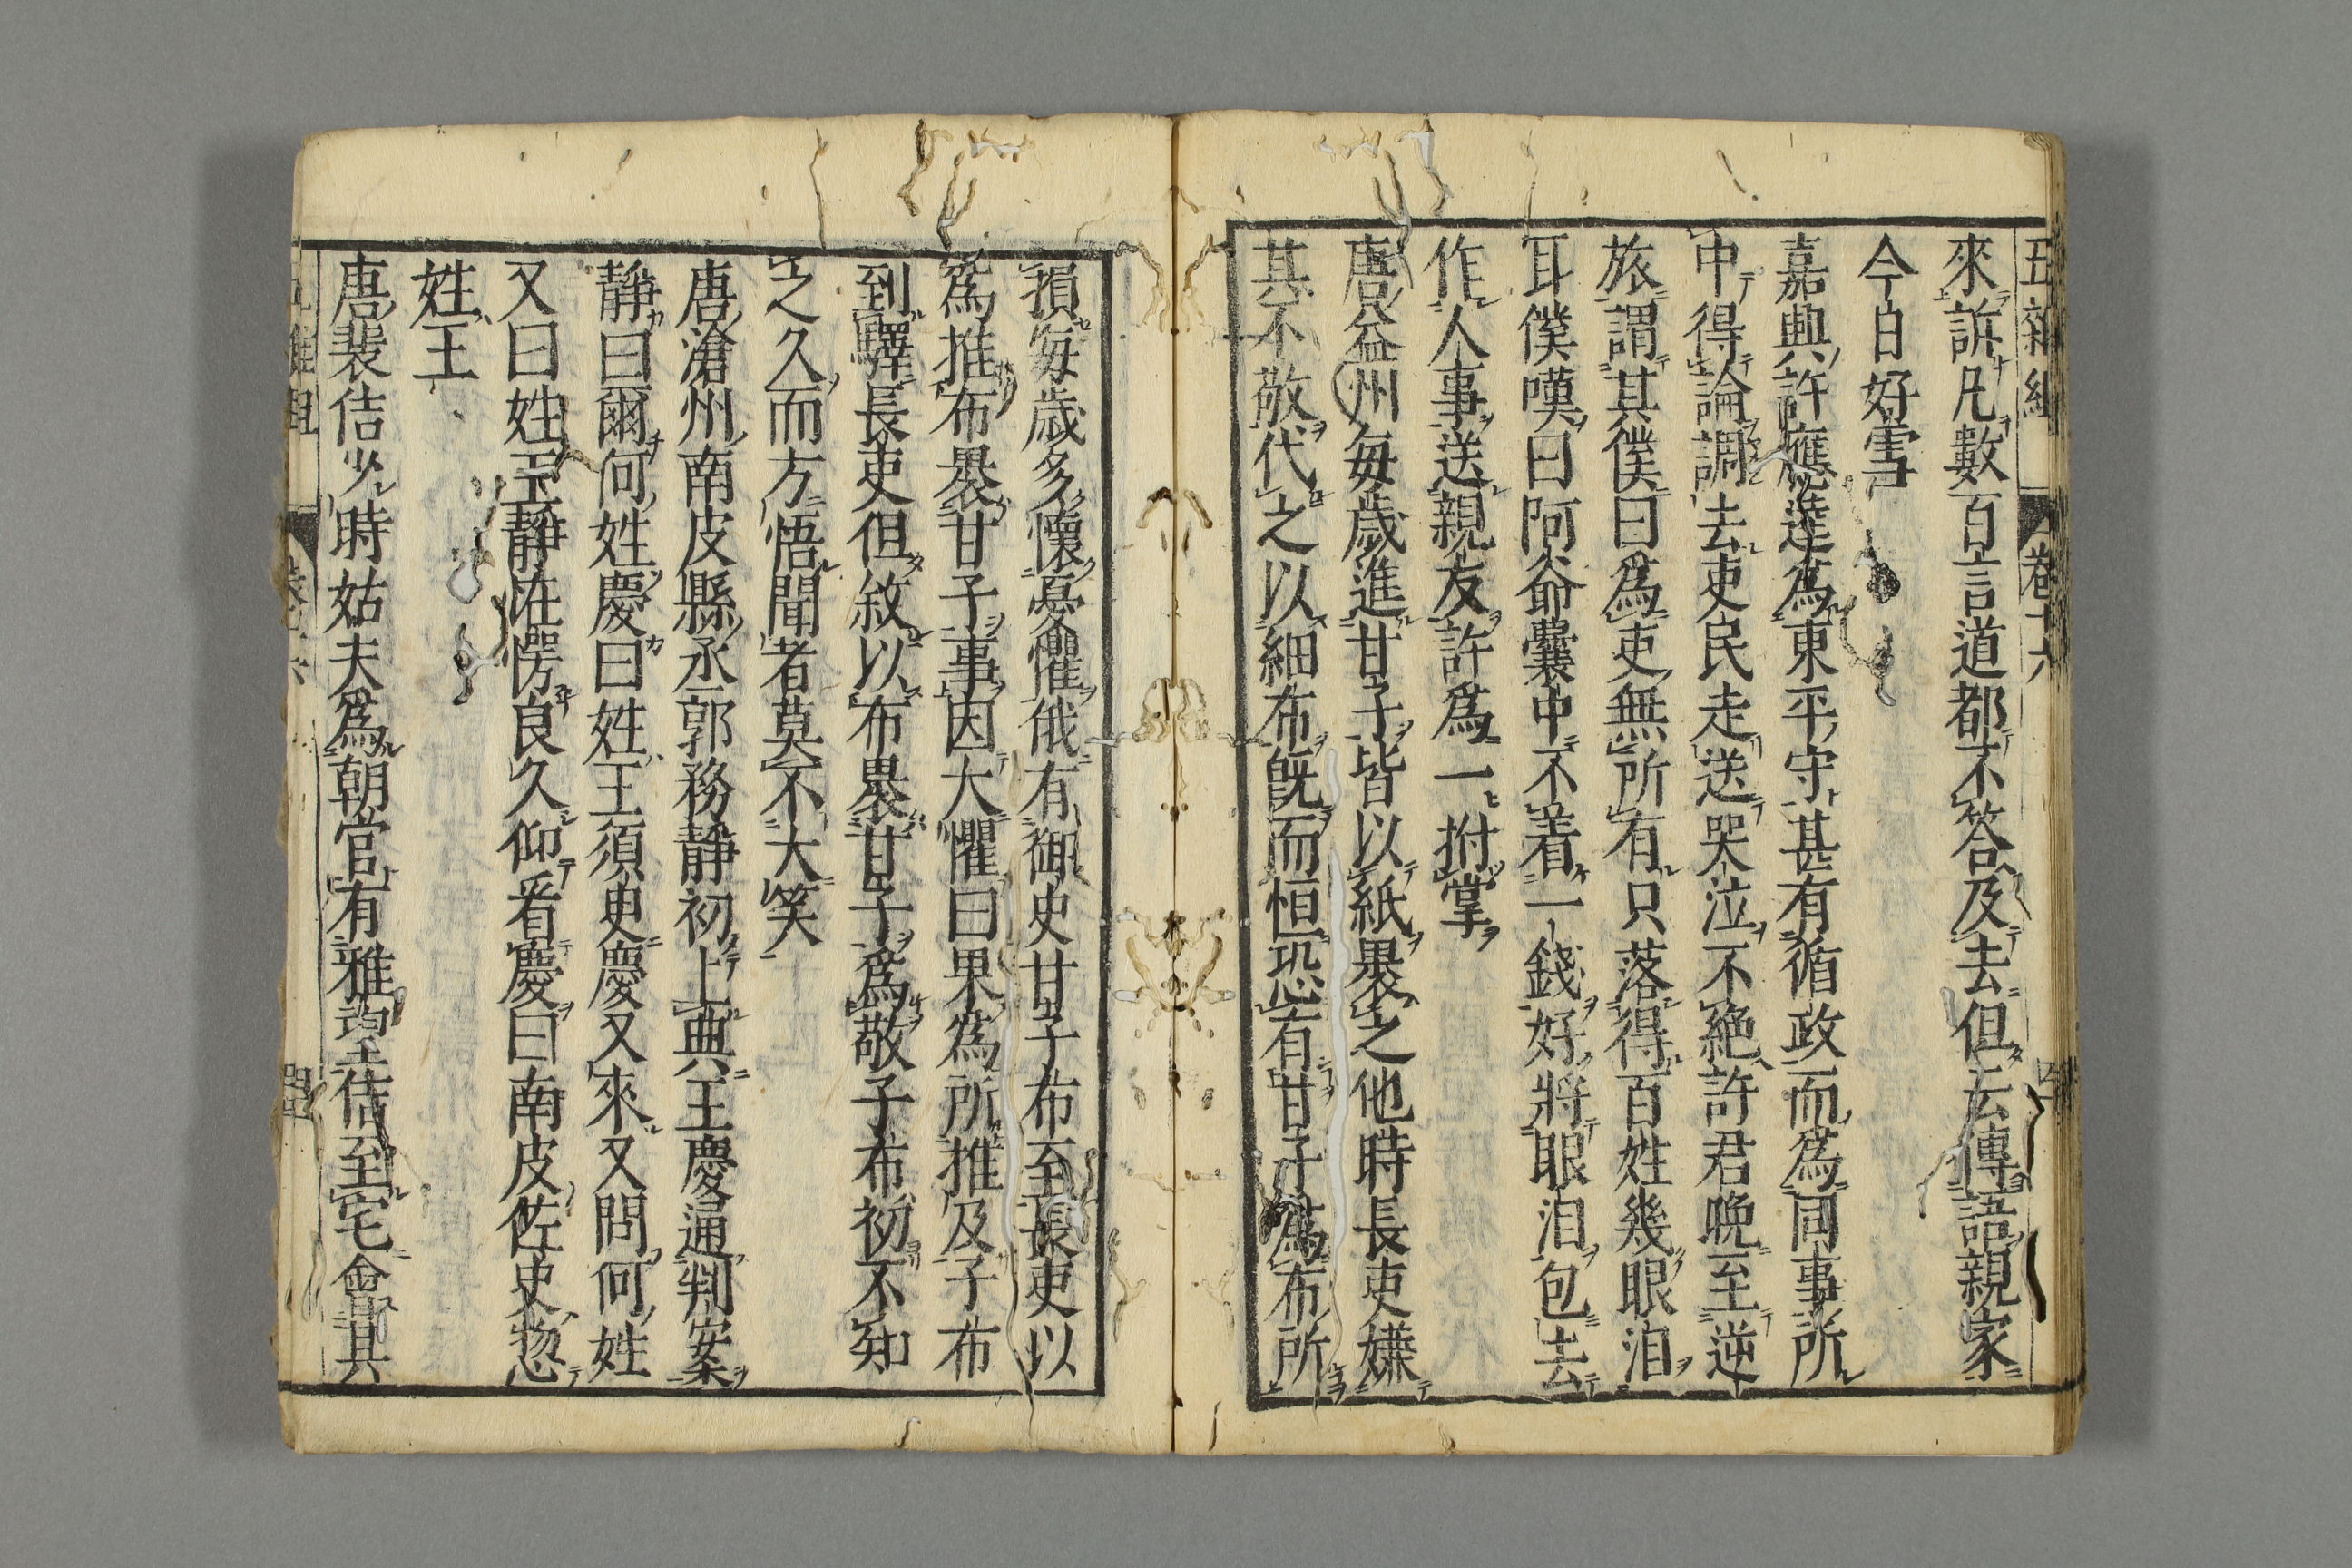 五雜組 卷十六
來訴凡數百言道都不答及去但云傳語親家
今日好雪
嘉興許應逵為東平守甚有循政而為同事所
中得論調去吏民走送哭泣不絕許君晚至逆
旅謂其僕曰為吏無所有只落得百姓幾眼泪
耳僕嘆曰阿爺囊中不着一錢好將眼泪包去
作人事送親友許為一拊掌
唐益州每歲進甘子皆以紙褁之他時長吏嫌
其不敬代之以細布旣而恒恐有甘子為布所
損每歲多懷憂懼俄有御史甘子布至長吏以
為推布褁甘子事因大懼曰果為所推及子布
到驛長吏但敘以布褁甘子為敬子布初不知
之久而方悟聞者莫不大笑
唐滄州南皮縣丞郭務靜初上典王慶通判案
靜曰爾何姓慶曰姓王須臾慶又來又問何姓
又曰姓王靜在愕良久仰看慶曰南皮佐史惣
姓王
唐裴佶少時姑夫為朝官有雅望佶至宅會其